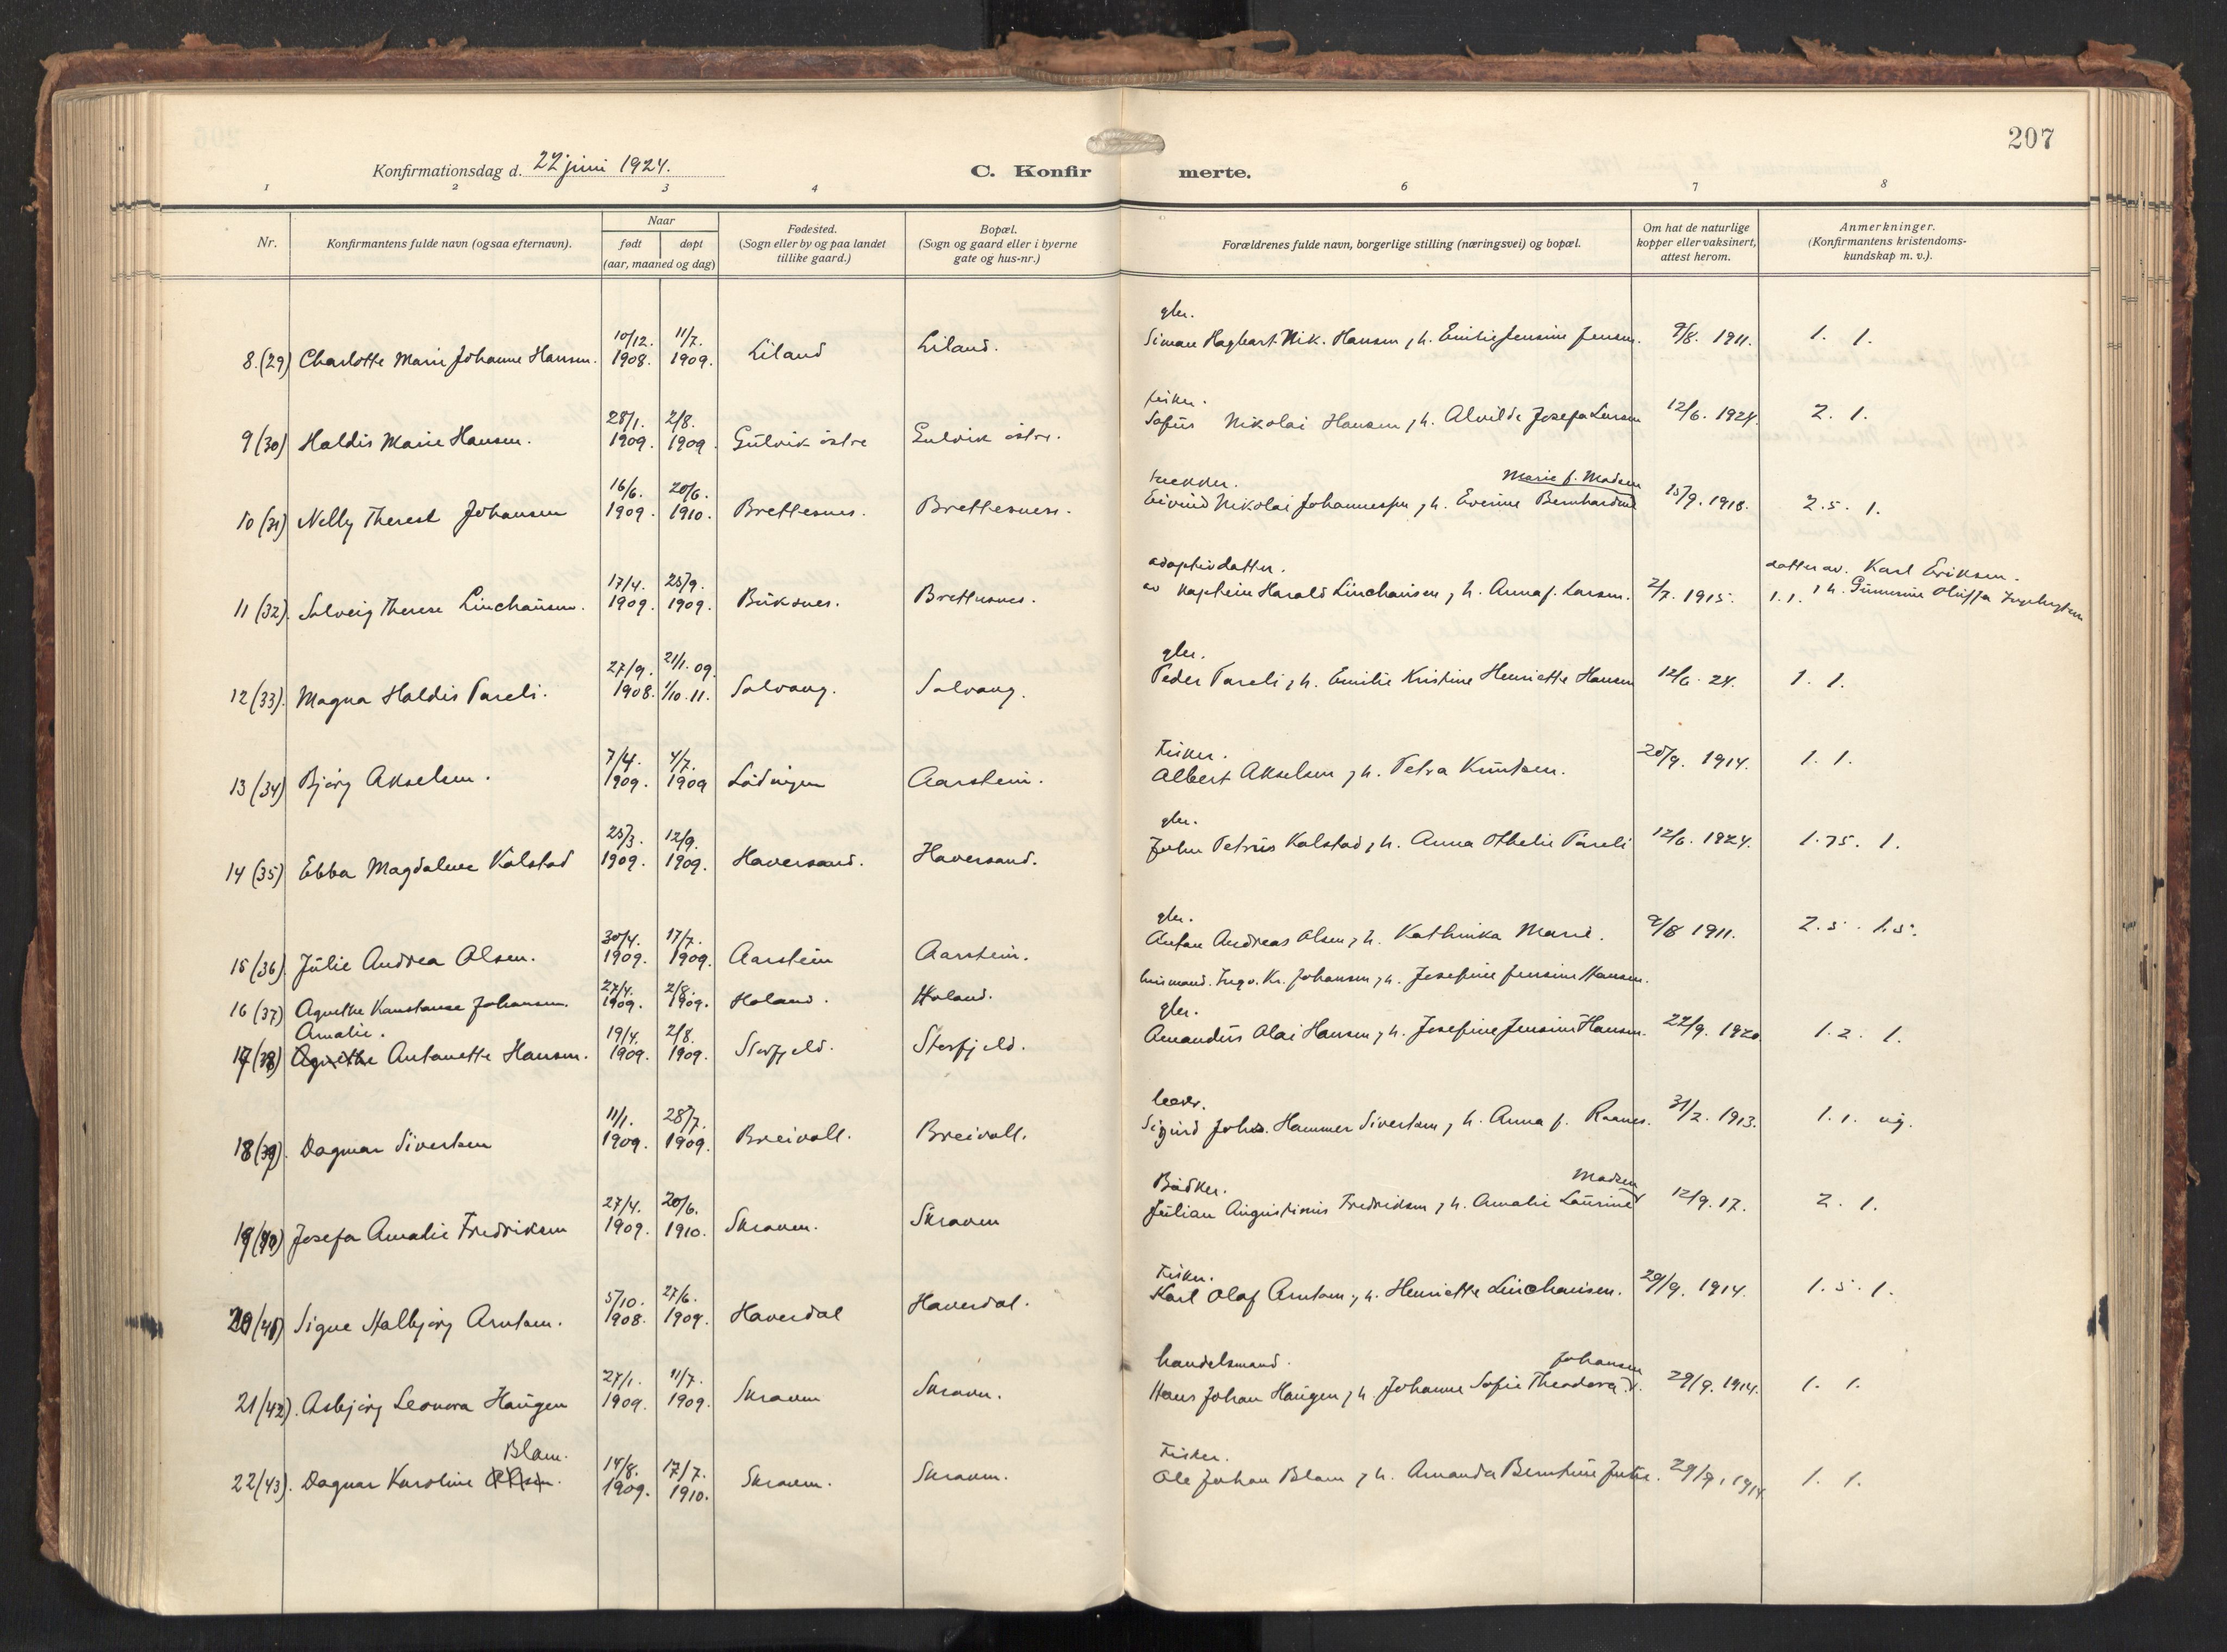 207
Konfirmationsdag d. 22 juni 1924.
C. Konfirmerte.
1 2 3 4 6 7 8
Nr.
Konfirmantens fulde navn (ogsaa efternavn).
Naar
født
døpt
(aar, maaned og dag)
Fødested.
(Sogn eller by og paa landet
tillike gaard.)
Bopæl.
(Sogn og gaard eller i byerne
gate og hus-nr.)
Forældrenes fulde navn, borgerlige stilling (næringsvei) og bopæl.
Om hat de naturlige
kopper eller vaksinert,
attest herom.
Anmerkninger.
(Konfirmantens kristendoms-
kundskap m. v.).
gbr.
10/12. 11/7.
8.(29) Charlotte Marie Johanne Hansen. 1908. 1909. Liland Liland. Simon Hagbart Nik. Hansen, h. Emilie Jensine Jensen. 9/8. 1911. 1. 1.
fisker.
28/1. 2/8.
9(30) Haldis Marie Hansen. 1909. 1909. Gulvik östre Gulvik östre. Sofus Nikolai Hansen, h. Alvilde Josefa Larsen 12/6. 1924. 2. 1.
16/6. 20/6. Marie f. Madsen
10(31) Nelly Therese Johansen 1909. 1910. Brettesnes. Brettesnes. Eivind Nikolai Johannessen, h. Everine Bernhardine 15/9. 1918. 2.5. 1.
adoptivdatter. datter av. Karl Eriksen.
17/4. 25/9.
11(32). Solveig Therese Linchausen. 1909. 1909. Buksnes. Brettesnes. av kaptein Harald Linchausen, h. Anna f. Larsen. 2/7. 1915. 1.1. , h. Oluffa
gbr.
27/9. 21/1. 09.
12(33). Magna Haldis Pareli. 1908. 1/10. 11. Solvang. Solvang. Peder Pareli, h. Emilie Kristine Henriette Hansen 12/6. 24. 1. 1.
Fisker.
7/4. 4/7.
13(34) Bjørg Akselsen. 1909. 1909 Lödingen Aarstein. Albert Akselsen, h. Petra Knutsen. 20/9. 1914. 1. 1.
gbr.
25/3. 12/9.
14(35) Ebba Magdalene Kalstad 1909. 1909. Haversand. Haversand. John Petrus Kalstad, h. Anna Othelie Pareli 12/6. 1924. 1.75. 1.
gbr.
30/4. 17/7.
15(36). Julie Andrea Olsen. 1909. 1909. Aarstein Aarstein. Anton Andreas Olsen, h. Kathinka Marie. 9/8 1911. 2.5. 1.5.
27/4. 2/8.
16(37) Agnethe Konstanse Johansen. 1909. 1909. Holand. Holand. husmand. Ingv. Kr. Johansen, h. Josefine Jensine Hansen.
Amalie. gbr.
19/4. 2/8.
17(38) Agnethe Antonette Hansen. 1909. 1909. Storfjeld. Storfjeld. Amandus Olai Hansen, h. Josefine Jensine Hansen. 22/9. 1920 1.2. 1.
11/1. 28/7.
18(39). Dagmar Sivertsen 1909. 1909. Breivoll. Breivoll. Sigurd Johs. Hammer Sivertsen, h. Anna f. Raanes. 31/2. 1913. 1.1. ug.
Bödker. Madsen
27/4. 20/6.
19(40) Josefa Amalie Fredriksen 1909. 1910. Skraaen. Skraaen Julian Augustinius Fredriksen, h. Amalie Laurine 12/9. 17. 2. 1.
Fisker.
5/10. 27/6.
20(41) Signe Halbjørg Arntsen. 1908. 1909. Haverdal Haverdal. Karl Olaf Arntsen, h. Henriette Linchausen. 29/9. 1914. 1.5. 1.
handelsmand. Johansen
27/1. 11/7.
21(42). Asbjørg Leonora Haugen 1909. 1909. Skraaen Skraaen. Hans Johan Haugen, h. Johanne Sofie Theodora 29/9. 1914. 1. 1.
Blom. Fisker.
14/8. 17/7.
22(43). Dagmar Karoline 1909. 1910. Skraaen. Skraaen. Ole Johan Blom, h. Amanda Berntine 29/9. 1914 1. 1.